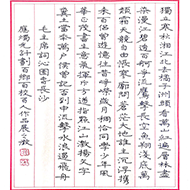 獨立寒秋湘江北去橘子洲頭看萬山紅遍層林盡
染漫江碧透百舸爭流鷹擊長空魚翔淺底萬
類霜天競自由悵寥廓問蒼茫大地誰主沉浮攜
來百侶曾遊憶往昔崢嶸歲月稠恰同學少年風
華正茂書生意氣揮斥方遒指點江山激揚文字
糞土當年萬戶侯曾記否到中流擊水浪遏飛舟
毛主席詞沁園春長沙
應燭光計劃百鄉百校百人作品展